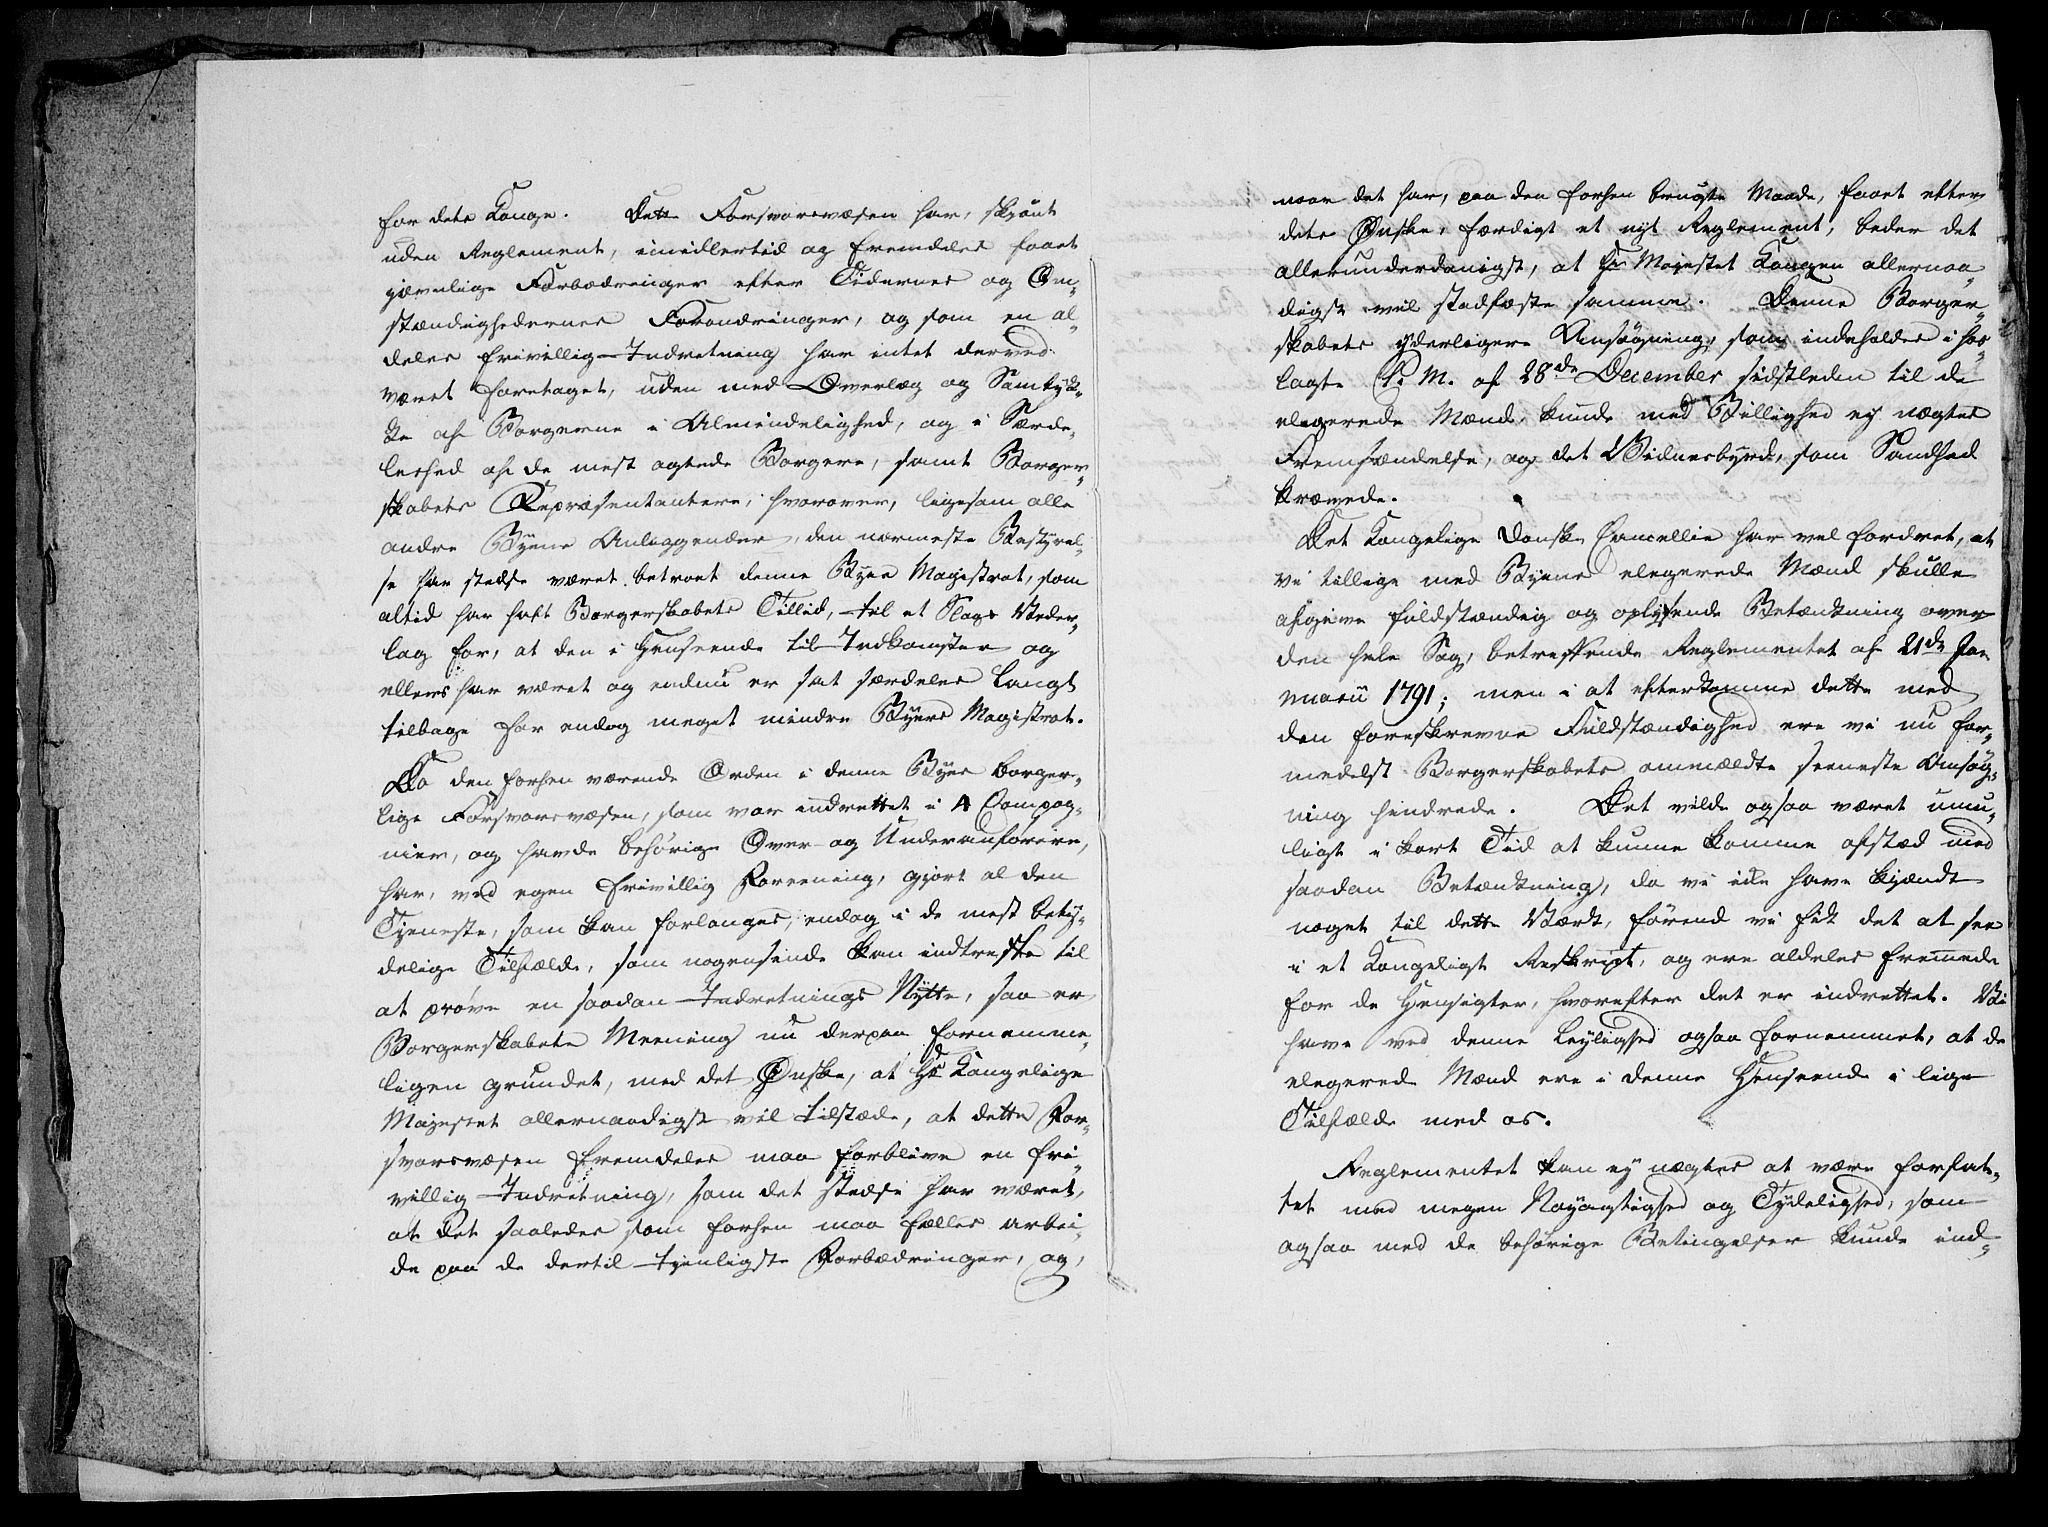 for dets Konge. Dette Forsvarsvæsen har, skjönt
uden Reglement, imidlertid og fremdeles faaet
jævnlige Forbædringer efter Tidernes og Om„
stændighedernes Forandringer, og som en al„
deles frivillig Indretning har intet derved
været foretaget, uden med Overlæg og Samtyk„
ke af Borgerne i Almindelighed, og i Særde„
leshed af de mest agtede Borgere, samt Borger„
skabets Repræsentantere, hvorover, ligesom alle
andre Byens Anliggender, den nærmeste Bestyrel„
se har stedse været betroet denne Byes Magistrat, som
altid har haft Borgerskabets Tillid, til et Slags Veder„
lag for, at den i Henseende til Indkomster og
ellers har været og endnu er sat særdeles langt
tilbage for endog meget mindre Byers Magistrat.
Da den forhen værende Orden i denne Byes borger„
lige Forsvarsvæsen, som var indrettet i 4 Compag„
nier, og havde behörige Over- og Underanförere,
har, ved egen frivillig Foreening, gjort al den
Tjeneste, som kan forlanges, endog i de mest bety„
delige Tilfælde, som nogensinde kan indtreffe til
at pröve en saadan Indretnings Nytte, saa er
Borgerskabets Meening nu derpaa fornemme„
ligen grundet, med det Önske, at Hs Kongelige
Majestet allernaadigst vil tilstæde, at dette For„
svarsvæsen fremdeles maa forblive en fri„
villig Indretning, som det stedse har været,
at det saaledes som forhen maa fælles arbei„
de paa de dertil tjenligste Forbædringer, og,
naar det har, paa den forhen brugte Maade, faaet efter
dets Önske, færdigt et nyt Reglement, beder det
allerunderdanigst, at Hs Majestet Kongen allernaa„
digst vil stadfæste samme. Denne Borger„
skabets yderligere Ansögning, som indeholdes i hos„
lagte P. M. af 28de December sidstleden til de
elegerede Mænd, kunde med Billighed ey nægtes
Fremsændelse, og det Vidnesbyrd, som Sandhed
krævede.
Det Kongelige Danske Cancellie har vel fordret, at
vi tillige med Byens elegerede Mænd skulle
afgive fuldstændig og oplysende Betænkning over
den hele Sag, betreffende Reglementet af 21de Ja„
nuarii 1791; men i at efterkomme dette med
den foreskrevne Fuldstændighed ere vi nu for„
medelst Borgerskabets anmældte seeneste Ansög„
ning hindrede. Det vilde ogsaa været umu„
ligt i kort Tid at kunne komme afstæd med
saadan Betænkning, da vi ikke have kjændt
noget til dette Værk, förend vi fik det at see
i et Kongeligt Reskript, og ere aldeles fremmede
for de Hensigter, hvorefter det er indrettet. Vi
have ved denne Leylighed ogsaa fornemmet, at de
elegerede Mænd ere i denne Henseende i lige
Tilfælde med os.
Reglementet kan ey nægtes at være forfat„
tet med megen Nöyagtighed og Tydelighed, som
ogsaa med de behörige Betingelser kunde ind„